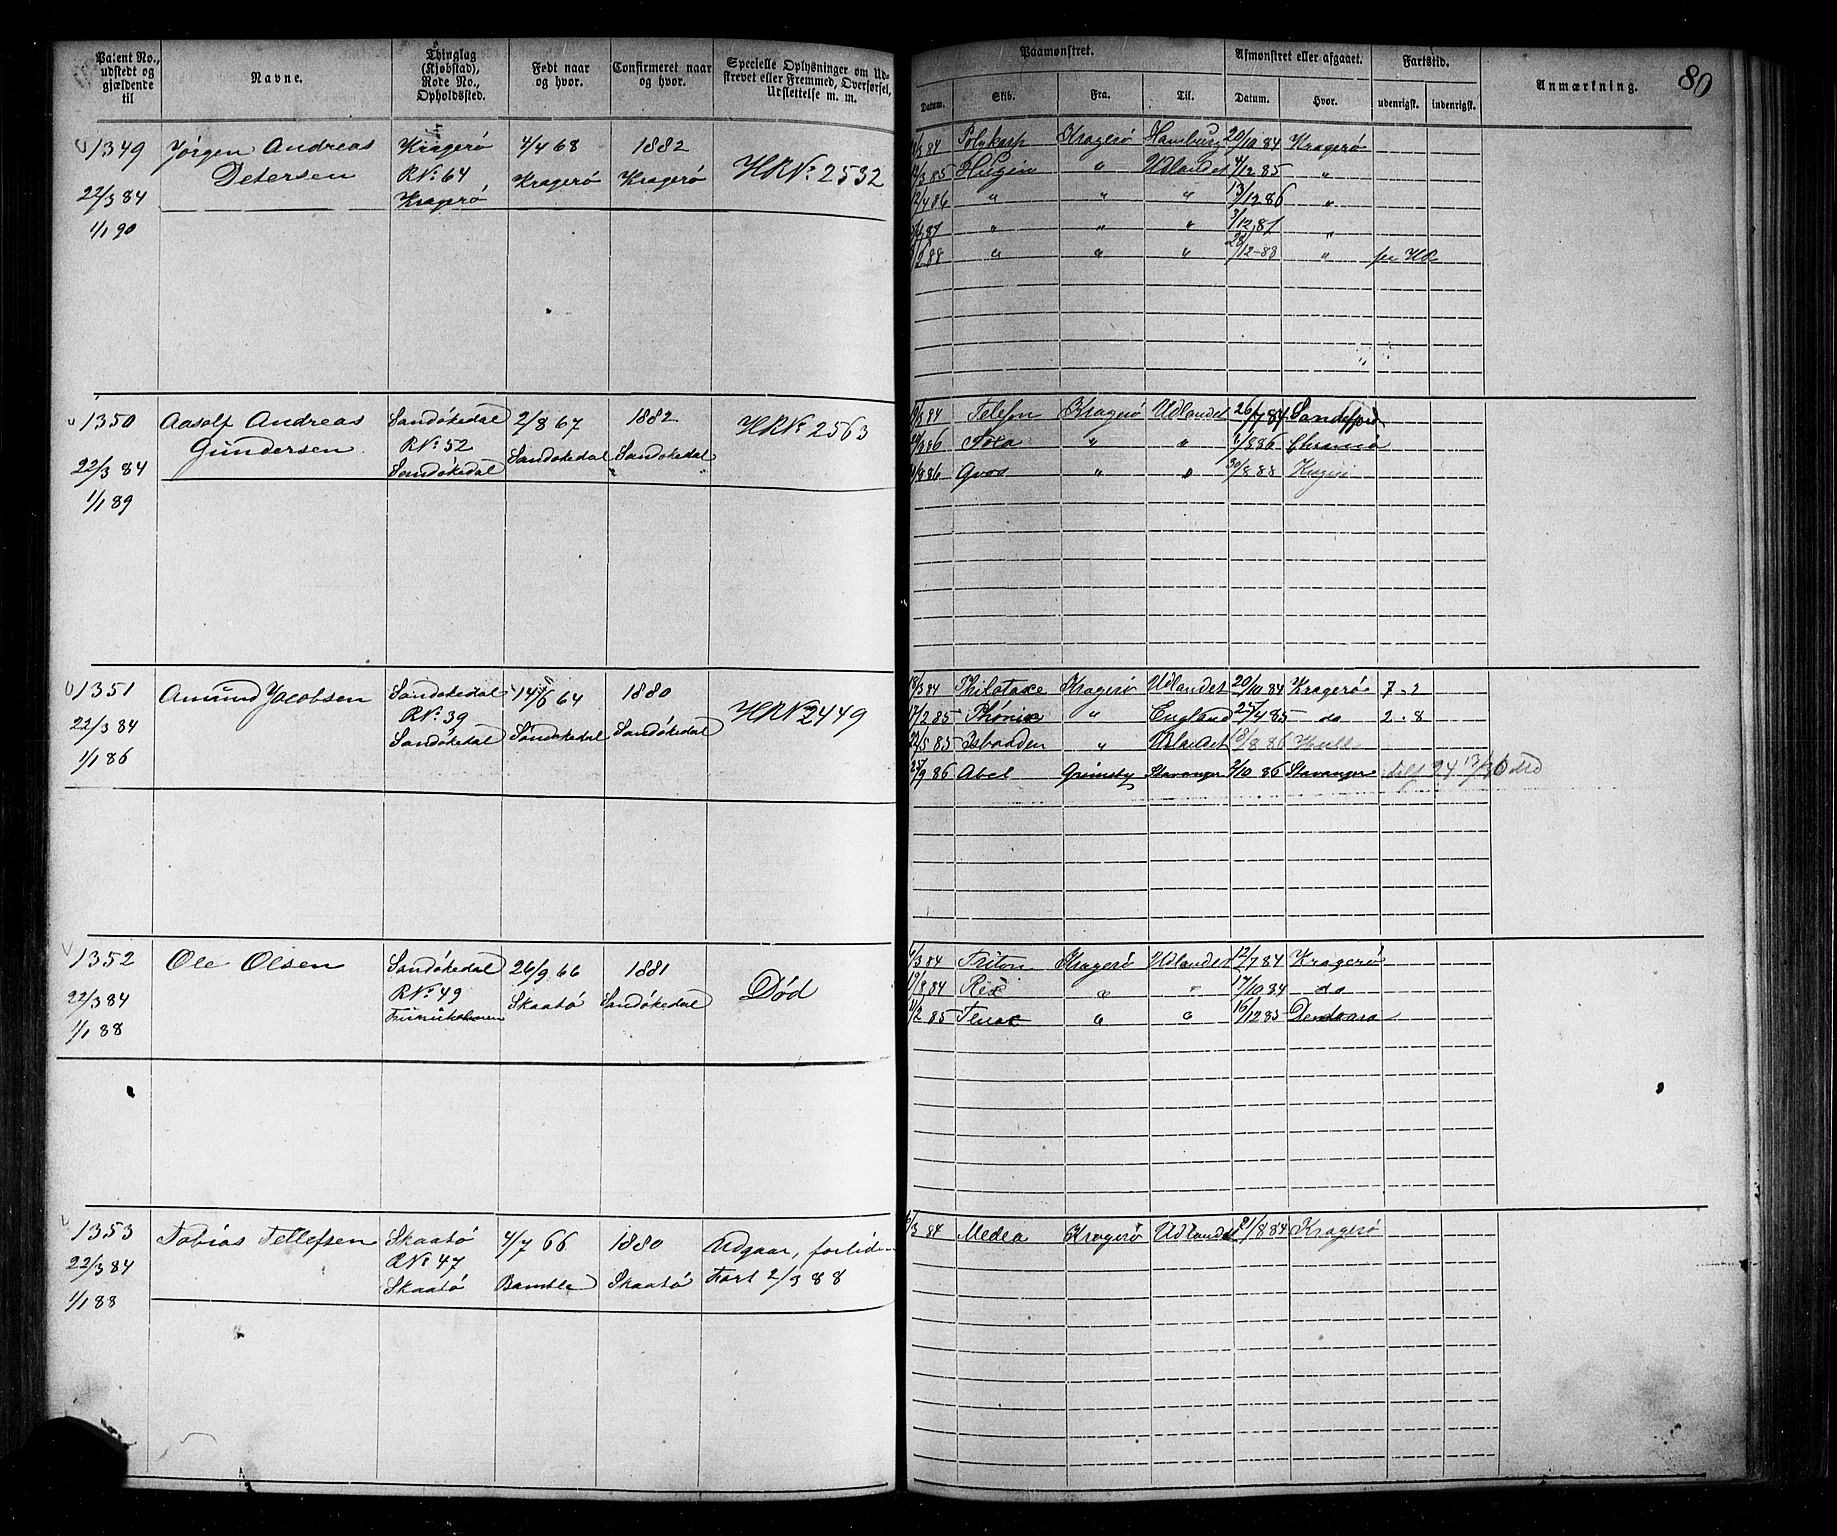 Patent No., udstedt og gjældende til
Navne.
Thinglag (Kjøbstad), Rode No., Opholdssted.
Født naar og hvor.
Confirmeret naar og hvor.
Specielle Oplysninger om Udskrevet eller Fremmed, Overførsel, Udslettelse m. m.
Paamønstret.
Datum. Skib. Fra. Til.
Afmønstret eller afgaaet.
Datum. Hvor.
Fartstid.
udenrigsk. indenrigsk.
Anmærkning.
80
1349 Jørgen Andreas Kragerø 4/4 68 1882
Petersen RNo 64 Kragerø Kragerø HRNo 2532
22/3 84 Kragerø
1/1 90
84 Polykarp Kragerø Hamburg 20/10 84 Kragerø
3 85 Hugin " Udlandet 4/12 85 "
12/4 86 " " " 13/12 86 "
87 " " " 3/12 87 "
2 88 " " " 28/12-88 " HR
1350 Aasolf Andreas Sandøkedal 2/8 67 1882 HRNo 2563
Gundersen RNo 52 Sandøkedal Sandøkedal
22/3 84 Sandøkedal
1/1 89
84 Telefon Kragerø Udlandet 26/7 84
86 " " 86
8 86 " " 30/8 88 Kragerø
1351 Amund Jacobsen Sandøkedal 64 1880
22/3 84 RNo 39 HRNo 2449
1/1 86 Sandøkedal Sandøkedal Sandøkedal
18/3 84 Philotaxe Kragerø Udlandet 20/10 84 Kragerø 7 - 2
17/2 85 Phønix " England 25/4 85 do 2 - 8
5 85 " Udlandet 18/8 86 Hull
25/9 86 Abel Grimsby Stavanger 2/10 86 Stavanger
1352 Ole Olsen Sandøkedal 26/9 66 1881 Død
22/3 84 RNo 49 Skaatø Sandøkedal
1/1 88
3 84 Triton Kragerø Udlandet 12/7 84 Kragerø
19/8 84 Rex " " 17/10 84 do
2 85 Tenax " " 16/12 85
1353 Tobias Tellefsen Skaatø 4/7 66 1880 Udgaar,
22/3 84 RNo 47 Bamble Skaatø Fart 2/3 88
1/1 88 Skaatø
3 84 Medea Kragerø Udlandet 21/8 84 Kragerø